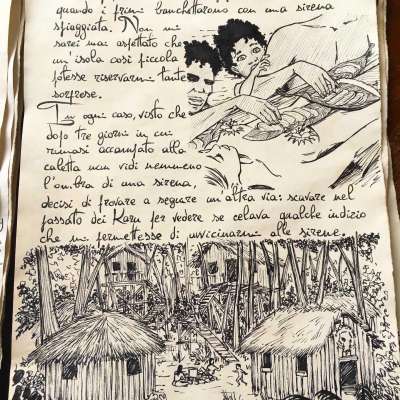 quando i primi banchettarono con una sirena
spiaggiata. Non mi
sarei mai aspettato che
un'isola così piccola
potesse riservarmi tante
sorprese.
In ogni caso, visto che
dopo tre giorni in cui
rimasi accampato alla
caletta non vidi nemmeno
l'ombra di una sirena,
decisi di provare a seguire un'altra via: scavare nel
passato dei Karu per vedere se celava qualche indizio
che mi permettesse di avvicinarmi alle sirene.